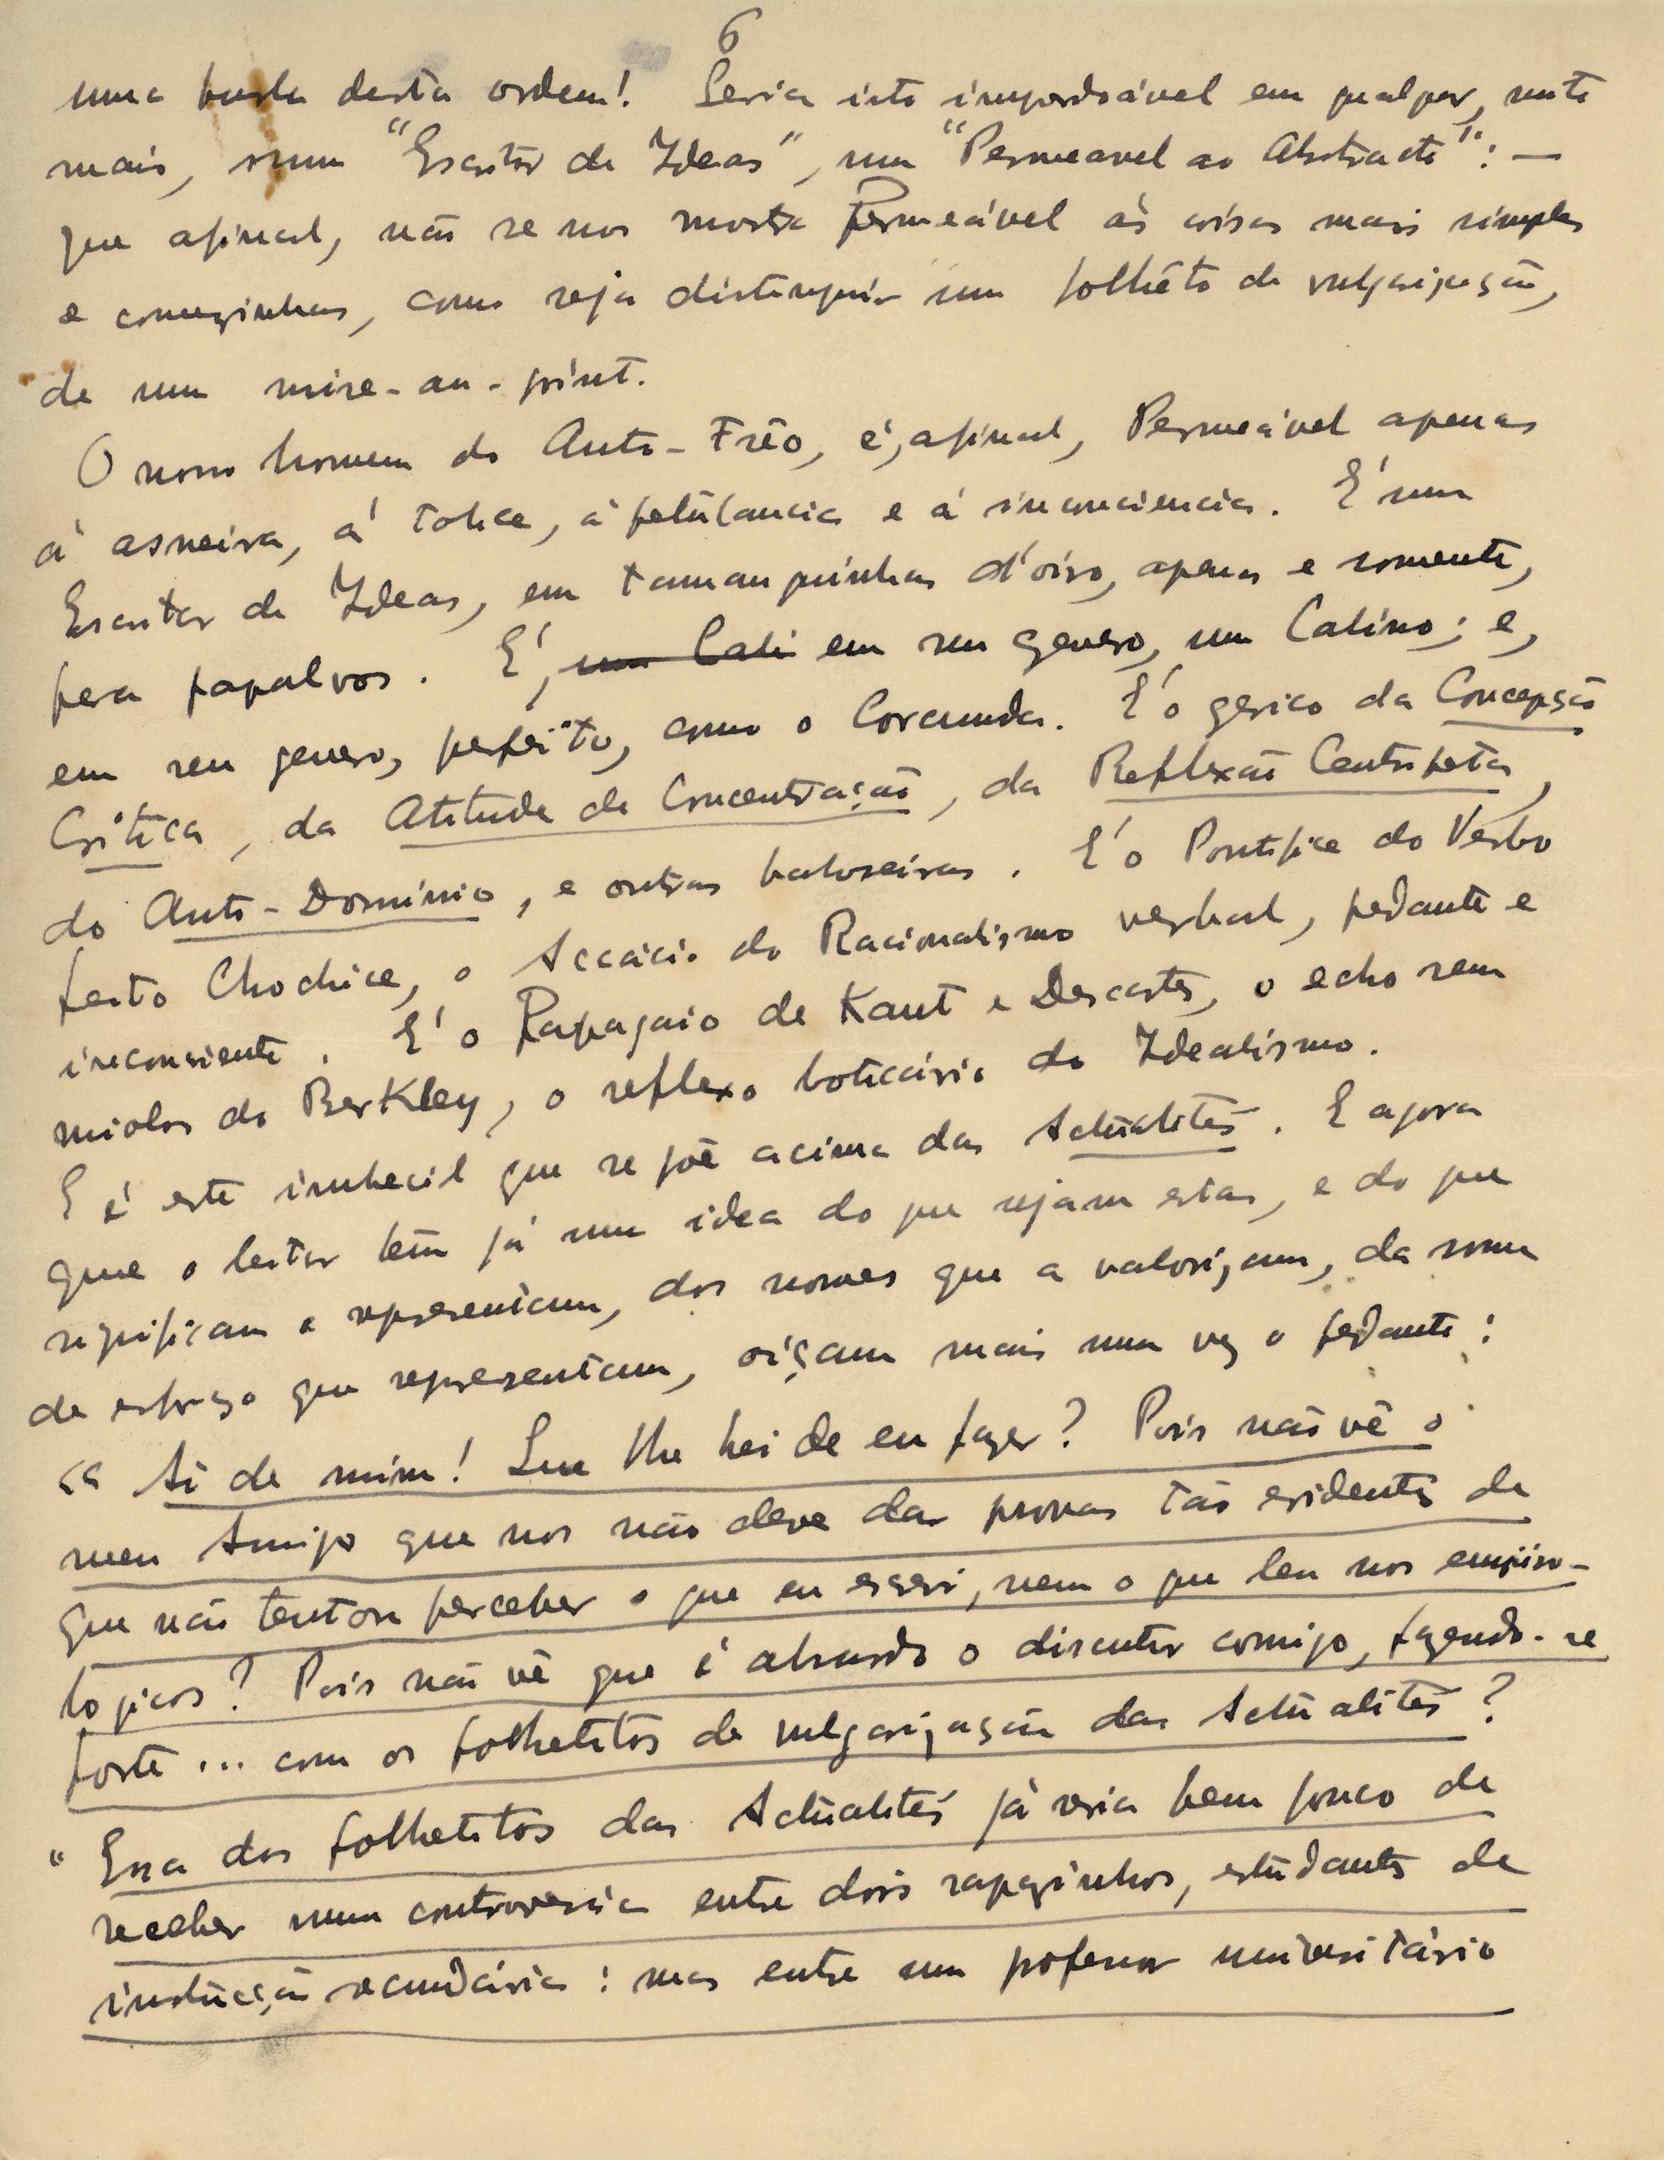 6
uma burla desta ordem! Seria isto imperdoável em qualquer, muito
mais, num "Escritor de Ideas", um "Permeavel ao Abstracto": —
que afinal, não se nos mostra Permeável às coisas mais simples
e comezinhas, como seja distinguir um folhêto de vulgarização,
de um mise-au-point.
O nosso homem do Anti-Frêo, é, afinal, Permeável apenas
á asneira, á tolice, á petulancia e á inconciencia. É um
Escritor de Ideas, em tamanquinhas d'óiro, apenas e somente,
pera papalvos. É, um Cali em seu genero, um Calino; e,
em seu genero, perfeito, como o Corcunda. É o gerico da Concepção
Critica, da Atitude de Concentração, da Reflexão Centripeta,
do Anti-Dominio, e outras baboseiras. É o Pontifice do Verbo
feito Chochice, o Accácio do Racionalismo verbal, pedante e
inconsciente. É o Papagaio de Kant e Descartes, o echo sem
miolos do BerKley, o reflexo boticário do Idealismo.
E é este imbecil que se põe acima das Actualités. E agora
que o leitor têm já uma idea do que sejam estas, e do que
significam e representam, dos nomes que a valorizam, da soma
de esforço que representam, oiçam mais uma vez o pedante:
"Ai de mim! Que lhe hei de eu fazer? Pois não vê o
meu Amigo que nos não deve dar provas tão evidentes de
que não tentou perceber o que eu escrevi, nem o que leu nos empiro-
logicos? Pois não vê que é absurdo o discutir comigo, fazendo-se
forte... com os folhetitos de vulgarização das Actualités?
"Essa dos folhetitos das Actualités já seria bem pouco de
receber numa controversia entre dois rapazinhos, estudantes de
instrucção secundária: mas entre um professor universitário